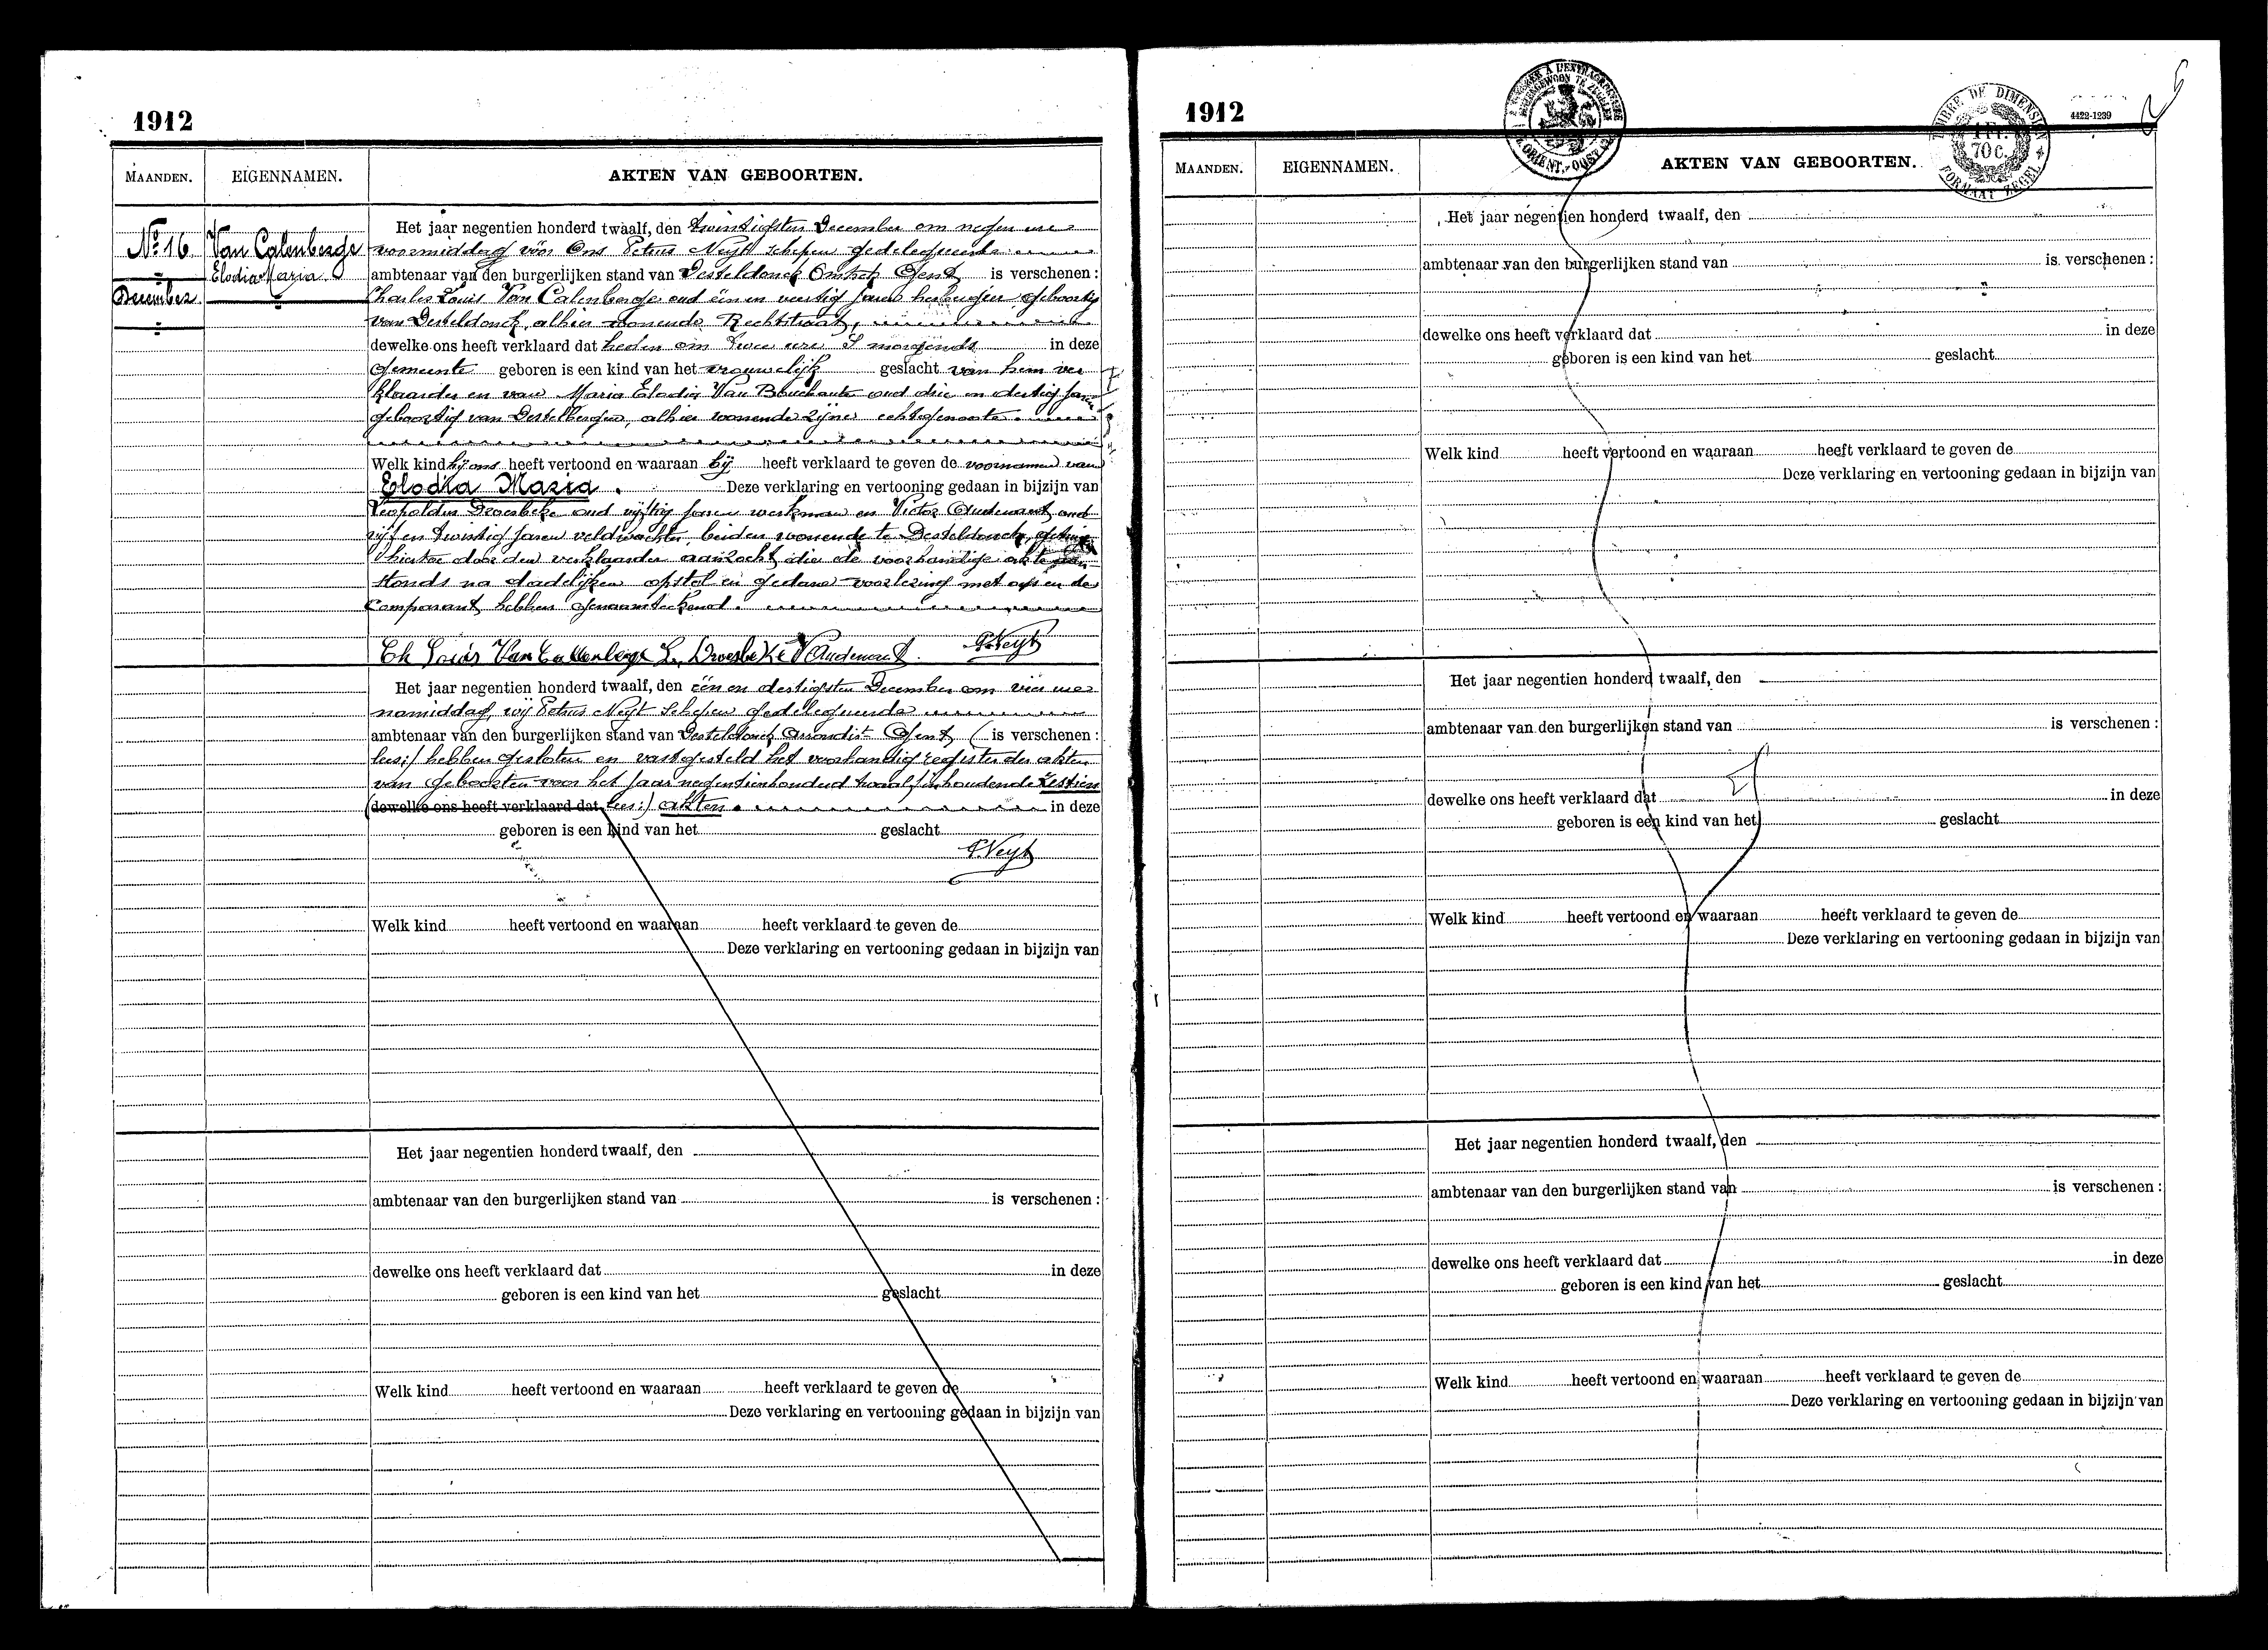 1912
MAANDEN.
EIGENNAMEN.
AKTEN VAN GEBOORTEN.
No 16.
December
Van Calenberge
Elodia Maria
Het jaar negentien honderd twaalf, den twintigsten December om negen ure
voormiddag vóór Ons Petrus Neyt schepen gedelegueerde
ambtenaar van den burgerlijken stand van Desteldonck Gent is verschenen :
Charles Louis Van Calenberge oud één en veertig jaren herbergier geboortig
van Desteldonck, alhier wonende Rechtstraat,
dewelke ons heeft verklaard dat heden om twee ure 's morgends in deze
gemeente geboren is een kind van het vrouwelijk geslacht van hem ver
klaarder en van Maria Elodia Van Bouchaute oud drie en dertig jaren
geboortig van Destelbergen, alhier wonende zijne echtgenoote.
Welk kind hij ons heeft vertoond en waaraan hij heeft verklaard te geven de voornamen van
Elodia Maria. Deze verklaring en vertooning gedaan in bijzijn van
Leopoldus Droesbeke oud vijftig jaren werkman en Victor Audenaert oud
vijf en twintig jaren veldwachter, beiden wonende te Desteldonck,
hiertoe door den verklaarder aanzocht, die de voorhandige akte
stonds na dadelijken opstel en gedane voorlezing met ons en de
comparant, hebben genaamteekend.
Ch Louis Van Callenberge L. Droesbeke V Audenaert. P. Neyt
Het jaar negentien honderd twaalf, den één en dertigsten December om vier ure
namiddag, wij Petrus Neyt Schepen gedelegueerde
ambtenaar van den burgerlijken stand van Desteldonck Arrondist Gent ( is verschenen :
lees:) hebben gesloten en vastgesteld het voorhandig register der akten
van geboorten voor het jaar negentienhonderd twaalf inhoudende Zestien
(dewelke ons heeft verklaard dat lees:) akten. in deze
geboren is een kind van het geslacht
P. Neyt
Welk kind heeft vertoond en waaraan heeft verklaard te geven de
Deze verklaring en vertooning gedaan in bijzijn van
Het jaar negentien honderd twaalf, den
ambtenaar van den burgerlijken stand van is verschenen :
dewelke ons heeft verklaard dat in deze
geboren is een kind van het geslacht
Welk kind heeft vertoond en waaraan heeft verklaard te geven de
Deze verklaring en vertooning gedaan in bijzijn van
1912
TIMBRE DE DIMENSION
70 c.
FORMAAT ZEGEL
4422-1239
MAANDEN.
EIGENNAMEN.
AKTEN VAN GEBOORTEN.
Het jaar negentien honderd twaalf, den
ambtenaar van den burgerlijken stand van is verschenen :
dewelke ons heeft verklaard dat in deze
geboren is een kind van het geslacht
Welk kind heeft vertoond en waaraan heeft verklaard te geven de
Deze verklaring en vertooning gedaan in bijzijn van
Het jaar negentien honderd twaalf, den
ambtenaar van den burgerlijken stand van is verschenen :
dewelke ons heeft verklaard dat in deze
geboren is een kind van het geslacht
Welk kind heeft vertoond en waaraan heeft verklaard te geven de
Deze verklaring en vertooning gedaan in bijzijn van
Het jaar negentien honderd twaalf, den
ambtenaar van den burgerlijken stand van is verschenen :
dewelke ons heeft verklaard dat in deze
geboren is een kind van het geslacht
Welk kind heeft vertoond en waaraan heeft verklaard te geven de
Deze verklaring en vertooning gedaan in bijzijn van